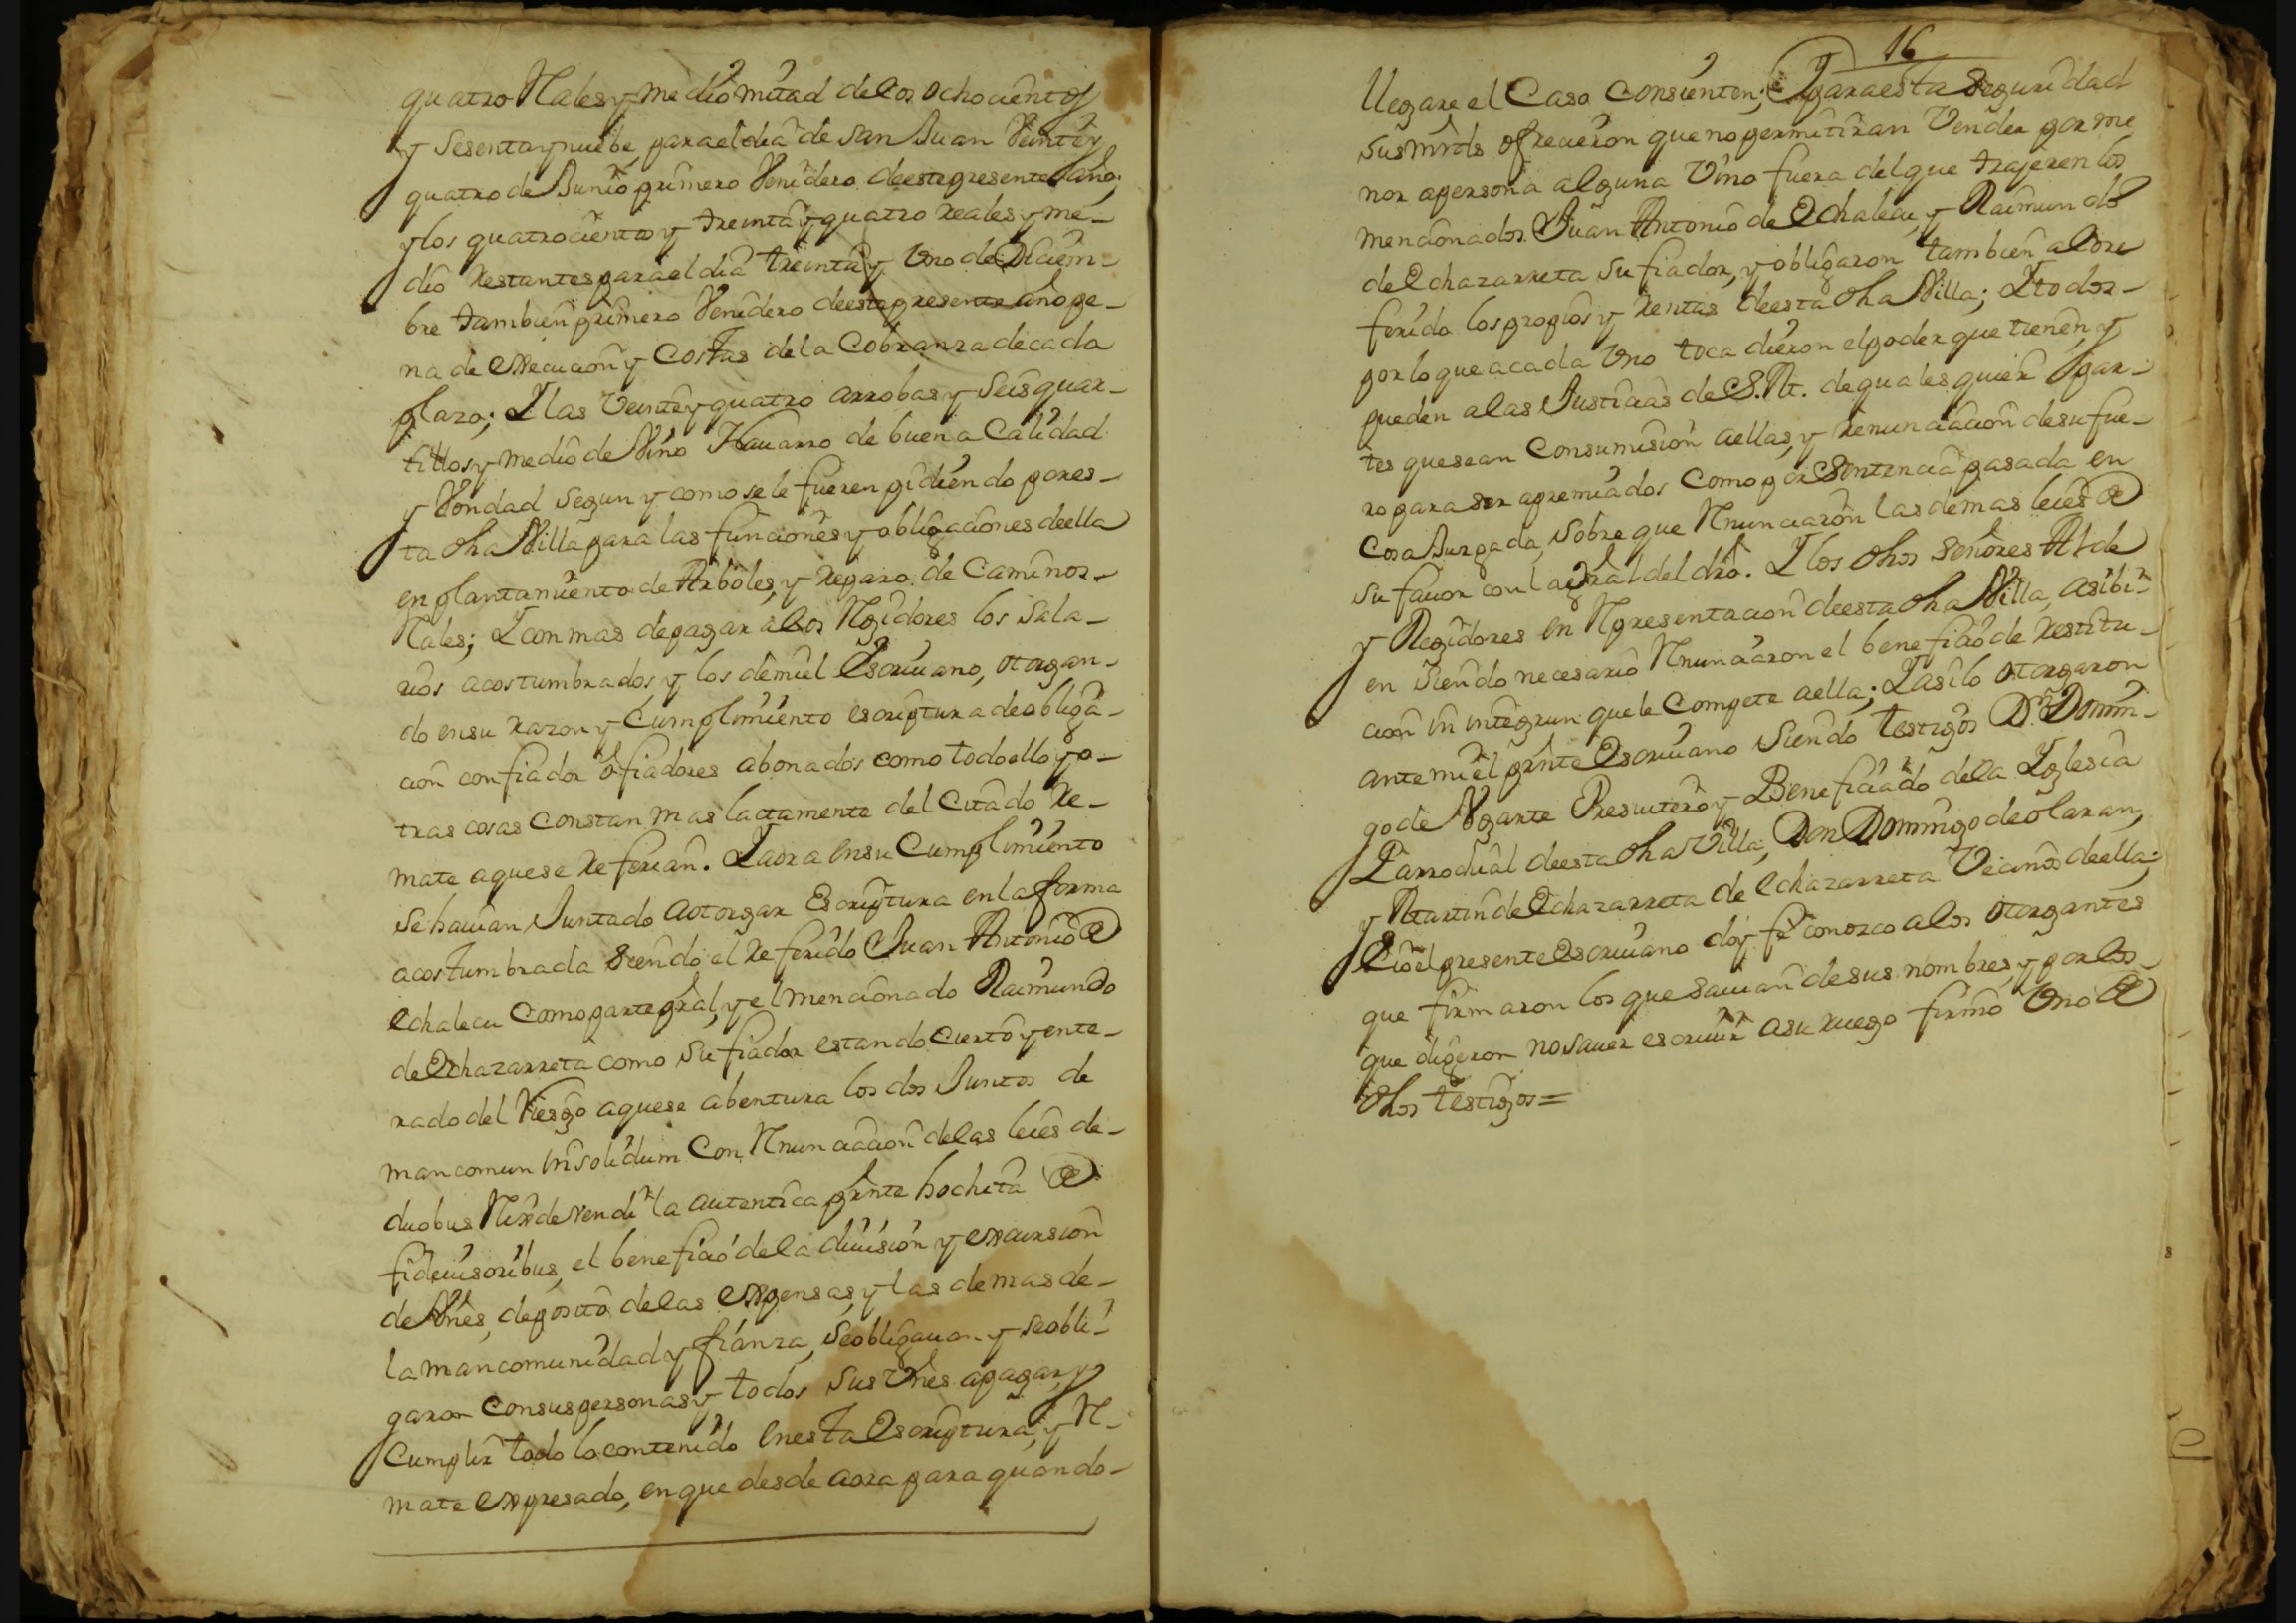 quatro Rales y medio mitad de los ochocientos
y Sesenta y nuebe para el dia de san Juan Veinte y
quatro de Junio primero Venidero de este presente año;
y los quatrocientos y treinta y quatro reales y me-
dio restantes para el dia treinta y Uno de Diciem-
bre tambien primero Venidero de este presente año pe-
na de execucion y Costas de la Cobranza de cada
plazo; Y las Veinte y quatro arrobas y seis quar-
tillos y medio de Vino Navarro de buena Calidad
y Vondad segun y como se le fueren pidiendo por es-
ta dha Villa para las funciones y obligaciones de ella
en plantamiento de Arboles, y reparo de Caminos
Rales; Y con mas de pagar a los Regidores los sala-
rios acostumbrados y los de mi el Escriuano, otorgan-
do en su razon y Cumplimiento escriptura de obliga-
cion con fiador o fiadores abonados como todo ello y o-
tras cosas Constan mas lactamente del Citado Re-
mate aque se referian. Y aora en su Cumplimiento
se hauian Juntado aotorgar Escriptura en la forma
acostumbrada siendo el referido Juan Antonio de
echalecu Como parte pral, y el mencionado Raimundo
de Echazarreta como su fiador estando cierto y ente-
rado del Riesgo aque se abentura los dos Juntos de
mancomun insolidum Con Rnunciacion de las leies de
duobus Rex de vendi la autentica prnte hochita de
fideiusoribus, el beneficio de la diuision y excursion
de Vnes, deposito de las expensas, y las demas de
la mancomunidad y fianza, se obligauan y se obli-
garon Consus personas y todos sus Vnes apagar, y
Cumplir todo lo contenido en esta Escriptura, y R-
mate expresado, en que desde aora para quando
16
llegare el Caso Consienten; Y para esta seguridad
sus mrds ofrecieron que no permitiran Vender por me
nor apersona alguna Vino fuera del que trajeren los
mencionados Juan Antonio de Echalecu, y Raimundo
de Echazarreta su fiador, y obligaron tambien alo re
ferido los propios y rentas de esta dha Villa; Y todos
por lo que acada Uno toca dieron el poder que tienen, y
pueden alas Justicias de S.M. de quales quier par-
tes que sean Consumision aellas, y renunciacion de su fue-
ro para ser apremiados Como por Sentencia pasada en
Cosa Juzgada, sobre que Rnunciaron las demas leies de
su fauor con la gral del dro. Y los dhos señores Alcde
y Regidores en Rpresentacion de esta dha Villa, asibi-
en siendo necesario Rnunciaron el beneficio de restitu-
cion in integrun que le Compete aella; Y asilo otorgaron
ante mi el prnte Escriuano siendo testigos Dn Domin-
go de Ugarte Presuitero y Beneficiado de la Yglesia
Parrochial de esta dha Villa, Don Domingo de olaran,
y Martin de Echazarreta de echazarreta Vecinos de ella;
E io el presente Escriuano doy fe conozco alos otorgantes
que firmaron los que sauian de sus nombres, y por los
que digeron no sauer escriuir asu ruego firmò Uno de
dhos testigos =